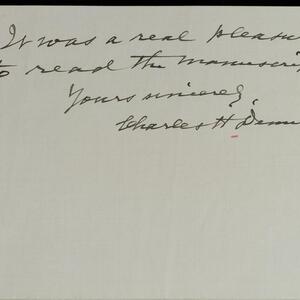 It was a real pleasu
to read the manuscrip
Yours sincerely,
Charles H Denn